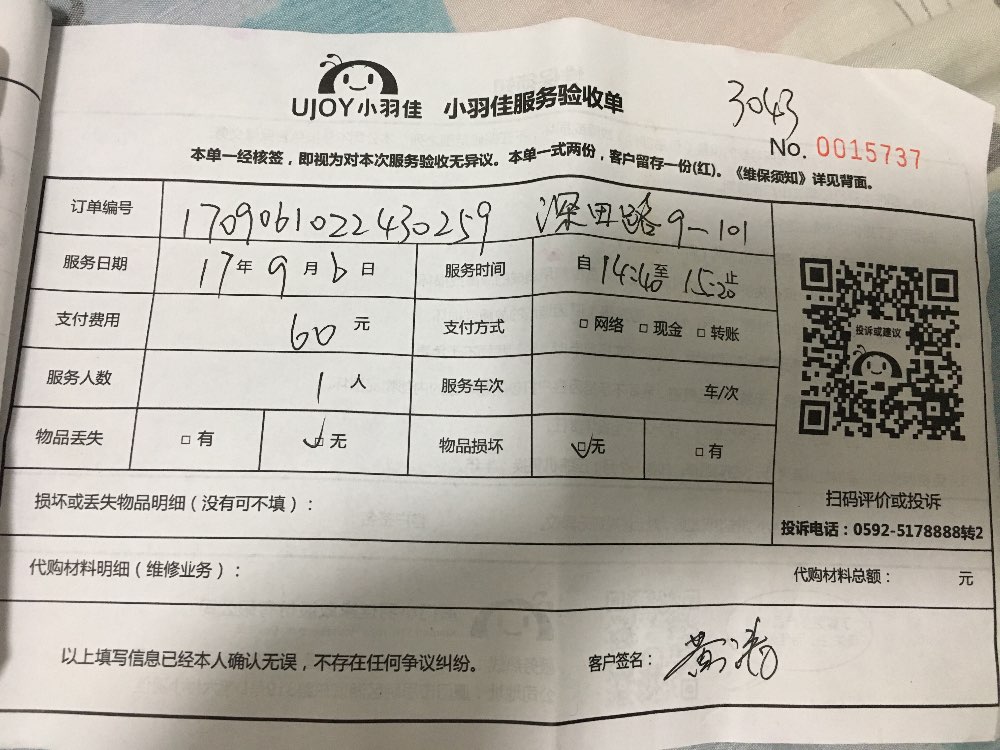 UJOY小羽佳 小羽佳服务验收单
3043
No. 0015737
本单一经核签，即视为对本次服务验收无异议。本单一式两份，客户留存一份(红)。《维保须知》详见背面。
订单编号 1709061022430259 深田路9-101
服务日期 17年9月6日 服务时间 自14:40至15:20止
支付费用 60元 支付方式 □网络 □现金 □转账
服务人数 1人 服务车次 车/次
物品丢失 □有 ☑无 物品损坏 ☑无 □有
投诉或建议
扫码评价或投诉
投诉电话：0592-5178888转2
损坏或丢失物品明细（没有可不填）：
代购材料明细（维修业务）： 代购材料总额： 元
以上填写信息已经本人确认无误，不存在任何争议纠纷。 客户签名：黄